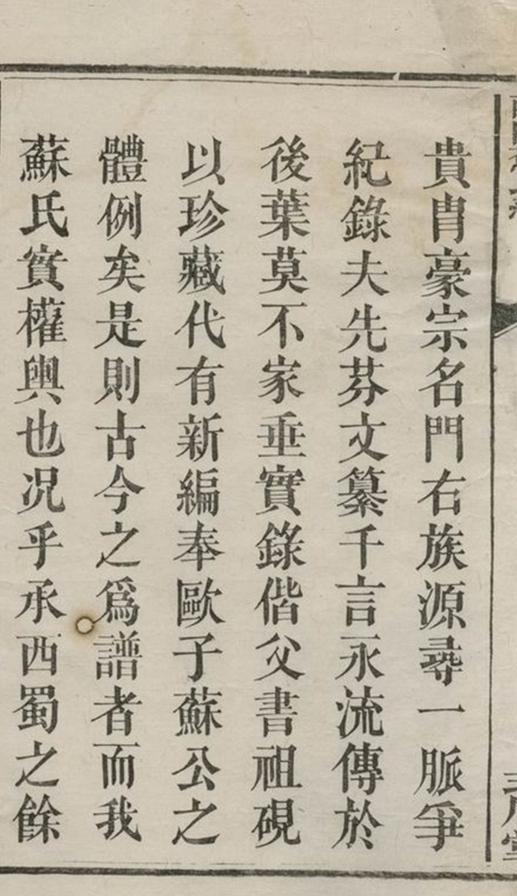 貴胄豪宗名門右族源尋一脈爭
紀錄夫先芬文纂千言永流傳於
後葉莫不家垂實錄偕父書祖硯
以珍藏代有新編奉歐子蘇公之
體例矣是則古今之爲譜者而我
蘇氏實權輿也况乎承西蜀之餘